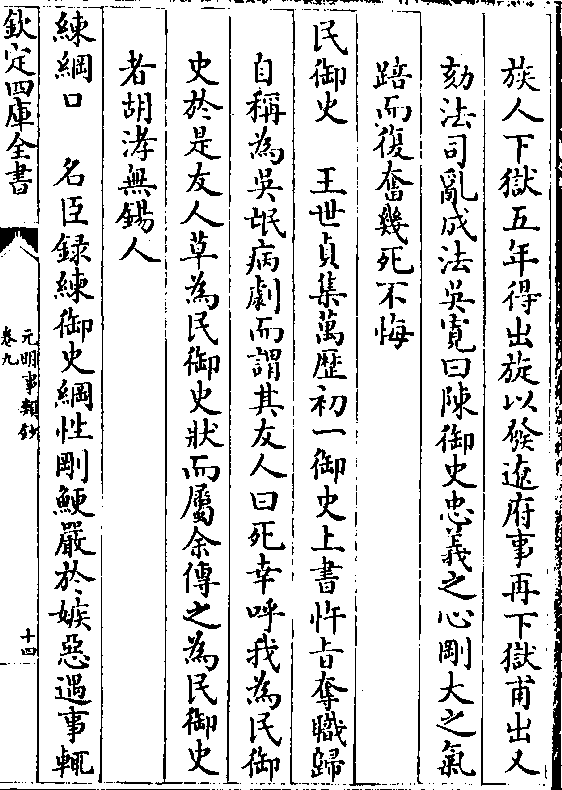 族人下獄五年得出旋以發遼府事再下獄甫出又
劾法司亂成法吳寬曰陳御史忠義之心剛大之氣
踣而復奮幾死不悔
民御史　王世貞集萬歴初一御史上書忤旨奪職歸
自稱為吳氓病劇而謂其友人曰死幸呼我為民御
史於是友人草為民御史狀而屬余傳之為民御史
者胡涍無錫人
練綱口　名臣録練御史綱性剛鯁嚴於嫉惡遇事輒
欽定四庫全書
元明事類鈔
卷九
十四